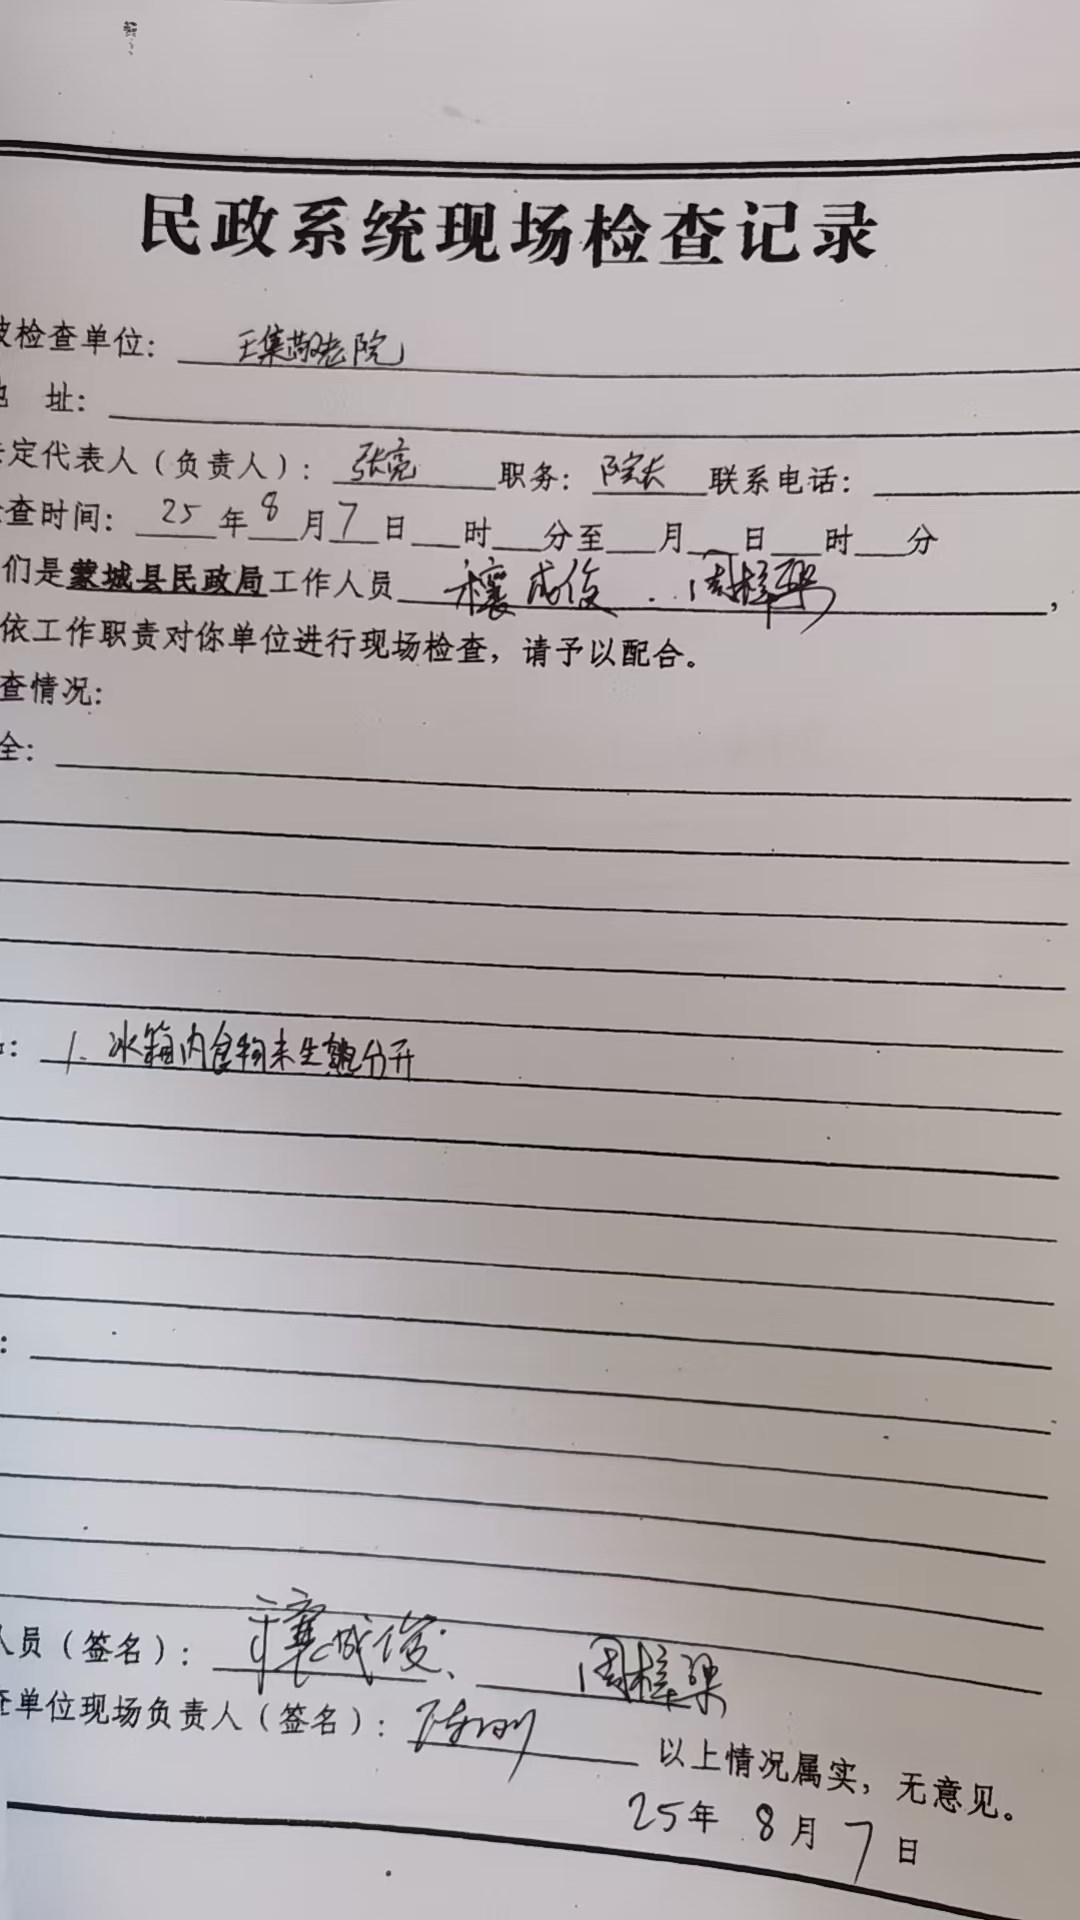 民政系统现场检查记录
被检查单位: 王集敬老院
地 址:
法定代表人(负责人): 张亮 职务: 院长 联系电话:
检查时间: 25年8月7日 时 分至 月 日 时 分
们是蒙城县民政局工作人员 成俊 . 周梓梁,
依工作职责对你单位进行现场检查, 请予以配合。
查情况:
全:
: 1. 冰箱内食物未生熟分开
:
人员(签名): 成俊、 周梓梁
查单位现场负责人(签名): 以上情况属实, 无意见。
25年 8月 7日